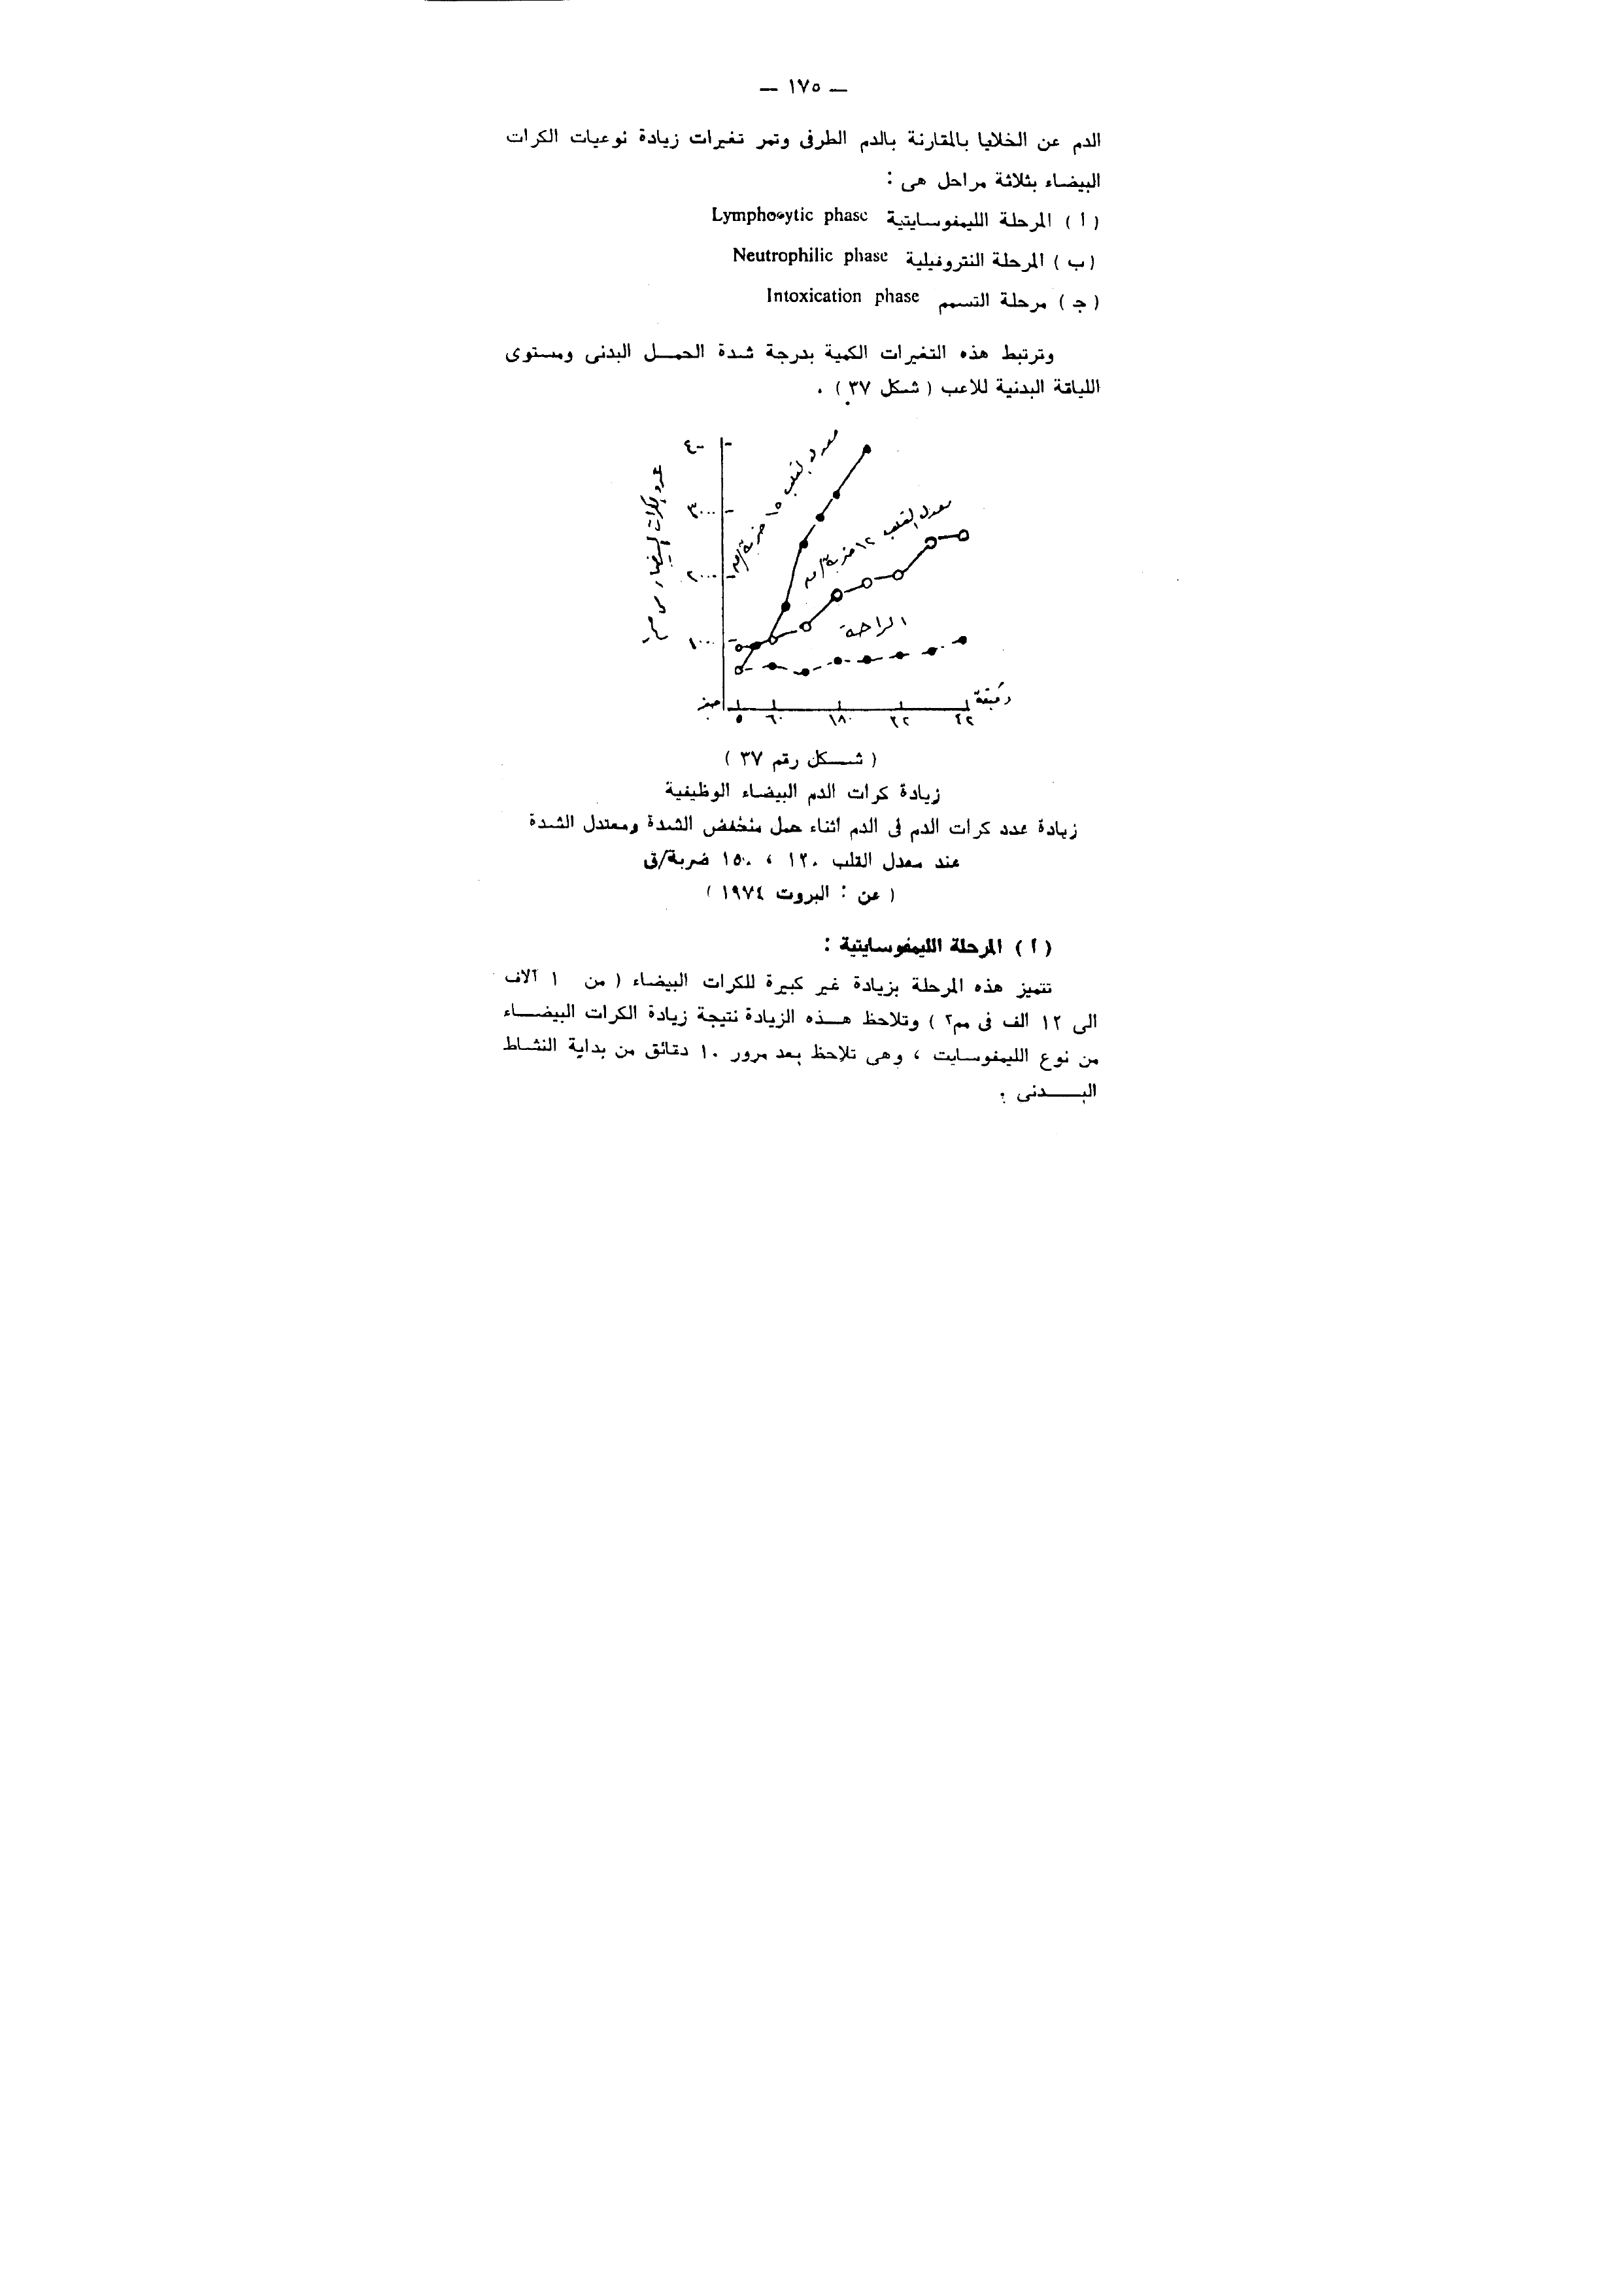 — ١٧٥ —
الدم عن الخلايا بالمقارنة بالدم الطرفى وتمر تغيرات زيادة نوعيات الكرات
البيضاء بثلاثة مراحل هى :
( أ ) المرحلة الليمفوسايتية Lymphocytic phase
( ب ) المرحلة النتروفيلية Neutrophilic phase
( ج ) مرحلة التسمم Intoxication phase
وترتبط هذه التغيرات الكمية بدرجة شدة الحمــل البدنى ومستوى
اللياقة البدنية للاعب ( شكل ٣٧ ) .
معدل القلب ١٥ ضربة/ق
معدل القلب ١٢ ضربة/ق
الراحة
٣٠٠٠
٢٠٠٠
١٠٠٠
صفر ٥ ٦٠ ١٨٠ ٢٢ ٤٢ دقيقة
( شــكل رقم ٣٧ )
زيادة كرات الدم البيضاء الوظيفية
زيادة عدد كرات الدم فى الدم اثناء حمل منخفض الشدة ومعتدل الشدة
عند معدل القلب ١٢٠ ، ١٥٠ ضربة/ق
( عن : البروت ١٩٧٤ )
( أ ) المرحلة الليمفوسايتية :
تتميز هذه المرحلة بزيادة غير كبيرة للكرات البيضاء ( من ١ آلاف
الى ١٢ الف فى مم٢ ) وتلاحظ هــذه الزيادة نتيجة زيادة الكرات البيضــاء
من نوع الليمفوسايت ، وهى تلاحظ بعد مرور ١٠ دقائق من بداية النشاط
البــــدنى .